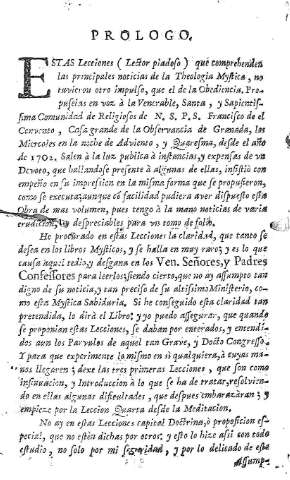 PROLOGO.
ESTAS Lecciones (Lector piadoso) que comprehenden
las principales noticias de la Theologia Mystica, no
tuvieron otro impulso, que el de la Obediencia, Pro-
puselas en voz à la Venerable, Santa, y Sapientis-
sima Comunidad de Religiosos de N. S. P. S. Francisco de el
Convento, Casa grande de la Observancia de Granada, los
Miercoles en la noche de Adviento, y Quaresma, desde el año
de 1702. Salen à la luz publica à instancias, y expensas de un
Devoto, que hallandose presente à algunas de ellas, insistiò con
empeño en su impression en la misma forma que se propusieron,
como se executa; aunque cõ facilidad pudiera aver dispuesto esta
Obra de mas volumen, pues tengo à la mano noticias de varia
erudicion, no despreciables para un tomo de folio.
He procurado en estas Lecciones la claridad, que tanto se
desea en los libros Mysticos, y se halla en muy raro; y es lo que
causa aquel tedio, y desgana en los Ven. Señores, y Padres
Confessores para leerlos; siendo cierto, que no ay assumpto tan
digno de su noticia, y tan preciso de su altissimo Ministerio, como
esta Mystica Sabiduria. Si he conseguido esta claridad tan
pretendida, lo dirà el Libro; y yo puedo assegurar, que quando
se proponian estas Lecciones, se daban por enterados, y entendi-
dos aun los Parvulos de aquel tan Grave, y Docto Congresso.
Y para que experimente lo mismo en sì qualquiera, à cuyas ma-
nos llegaren; dexe las tres primeras Lecciones, que son como
institucion, y Introduccion à lo que se ha de tratar, resolvien-
do en ellas algunas dificultades, que despues embarazàran: y
empieze por la Leccion Quarta desde la Meditacion.
No ay en estas Lecciones capital Doctrina, ò proposicion es-
pecial, que no estèn dichas por otros: y esto lo hize assi con todo
estudio, no solo por mi seguridad, y por lo delicado de este
Assump-